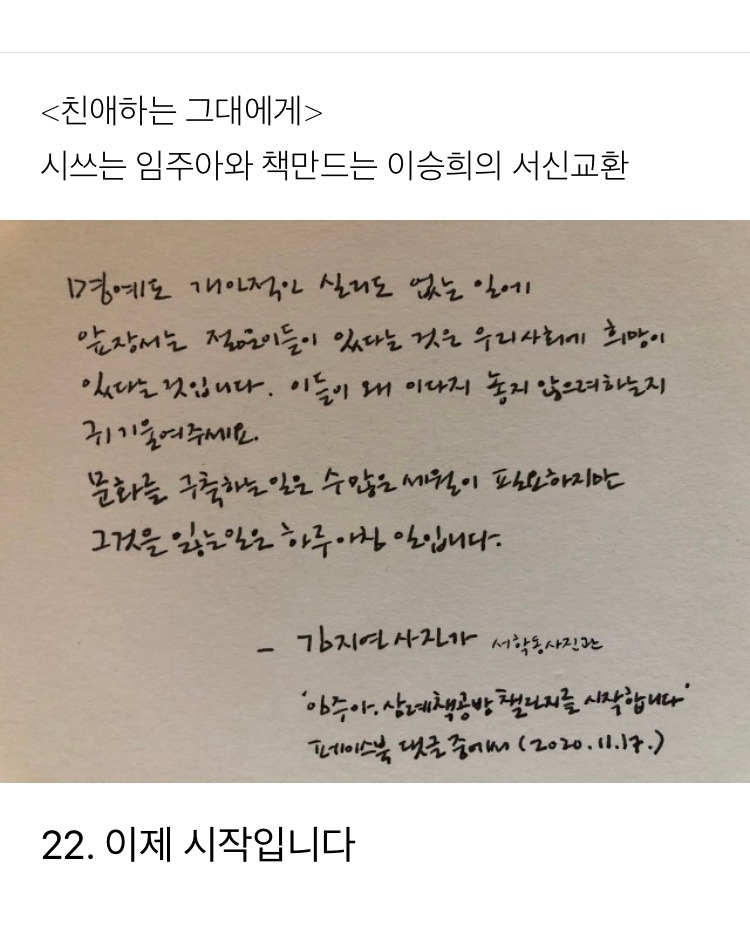 <친애하는 그대에게>
시쓰는 임주아와 책만드는 이승희의 서신교환
명예도 개인적인 실리도 없는 일에
앞장서는 젊은이들이 있다는 것은 우리사회에 희망이
있다는 것입니다. 이들이 왜 이다지 놓지 않으려하는지
귀기울여주세요.
문화를 구축하는 일은 수많은 세월이 필요하지만
그것을 잃는 일은 하루아침 일입니다.
- 김지연 사진가 서학동사진관
'임주아. 삼례책공방 챌린지를 시작합니다'
페이스북 댓글 중에서 (2020.11.17.)
22. 이제 시작입니다